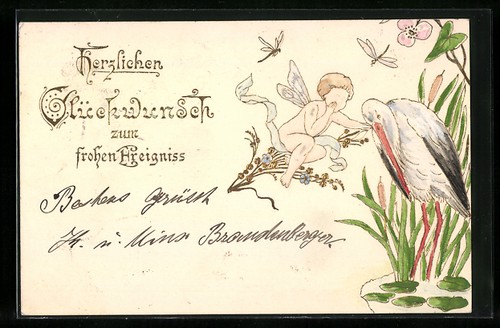 Herzlichen
Glückwunsch
zum
frohen Ereigniss
Bestens grüsst
Fr. u. Mina Brandenberger